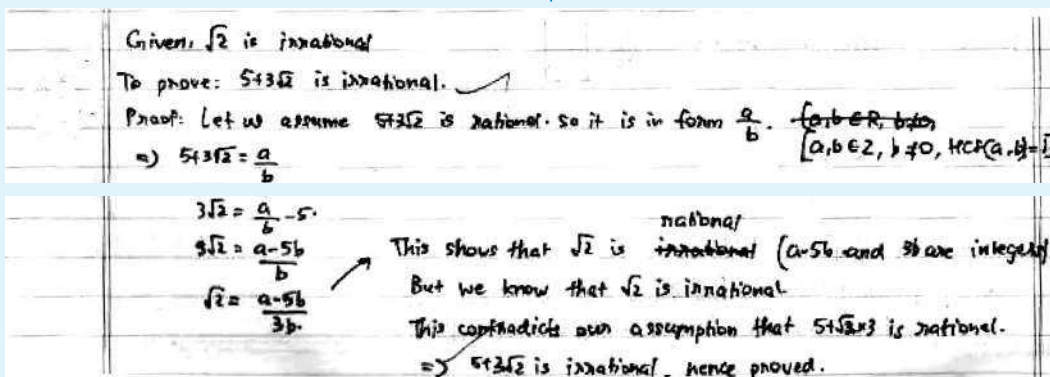 Given, √2 is irrational
To prove: 5+3√2 is irrational.
Proof: Let us assume 5+3√2 is rational. So it is in form a/b. {a,b∈R, b≠0,
[a,b∈Z, b≠0, HCF(a,b)=1
⇒) 5+3√2 = a/b
3√2 = a/b -5.
3√2 = a-5b/b
√2 = a-5b/3b.
rational
This shows that √2 is irrational (a-5b and 3b are integers)
But we know that √2 is irrational
This contradicts our assumption that 5+√2×3 is rational.
⇒) 5+3√2 is irrational. hence proved.